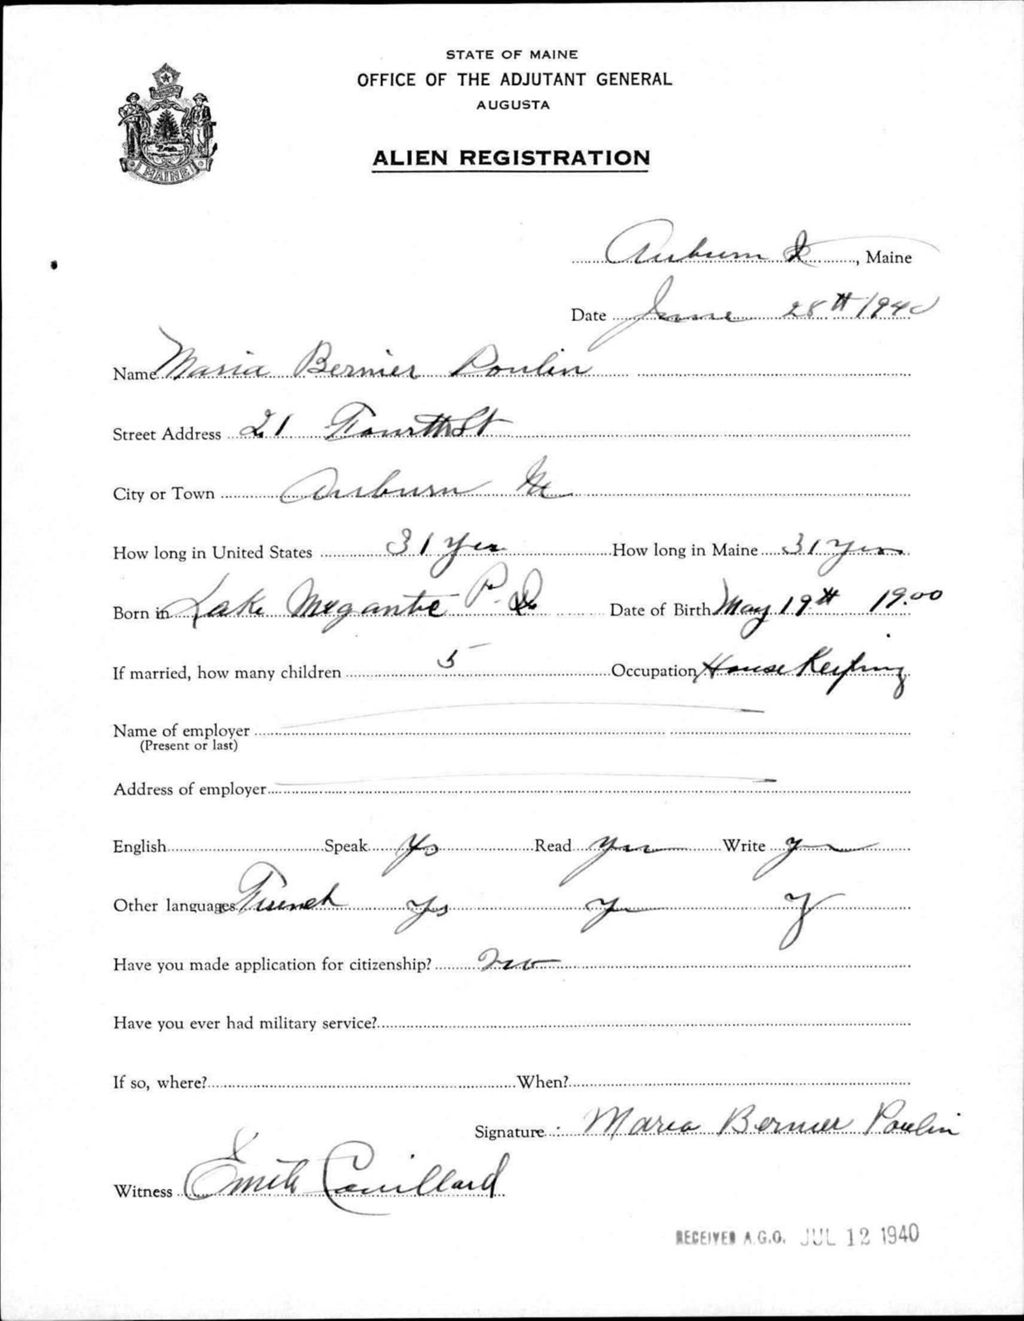 STATE OF MAINE
OFFICE OF THE ADJUTANT GENERAL
AUGUSTA
ALIEN REGISTRATION
MAINE
Auburn, Maine
Date June 28th 1940
Name Maria Bernier Poulin
Street Address 21 Fourth St
City or Town Auburn Me
How long in United States 31 Yrs How long in Maine 31 Yrs
Born in Lake Megantic P. Q. Date of Birth May 19th 1900
If married, how many children 5 Occupation House Keeping
Name of employer
(Present or last)
Address of employer
English Speak Yes Read Yes Write Yes
Other languages French Yes Yes Y
Have you made application for citizenship? No
Have you ever had military service?
If so, where? When?
Signature Maria Bernier Poulin
Witness Emile Couillard
RECEIVED A.G.O. JUL 12 1940